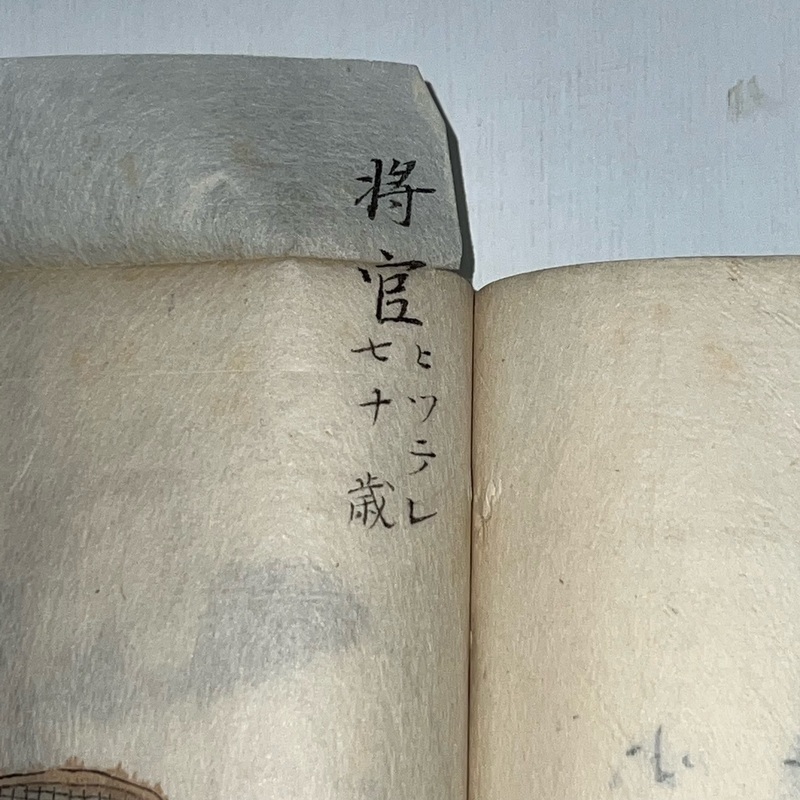 将官
ヒツテレ
七十歳